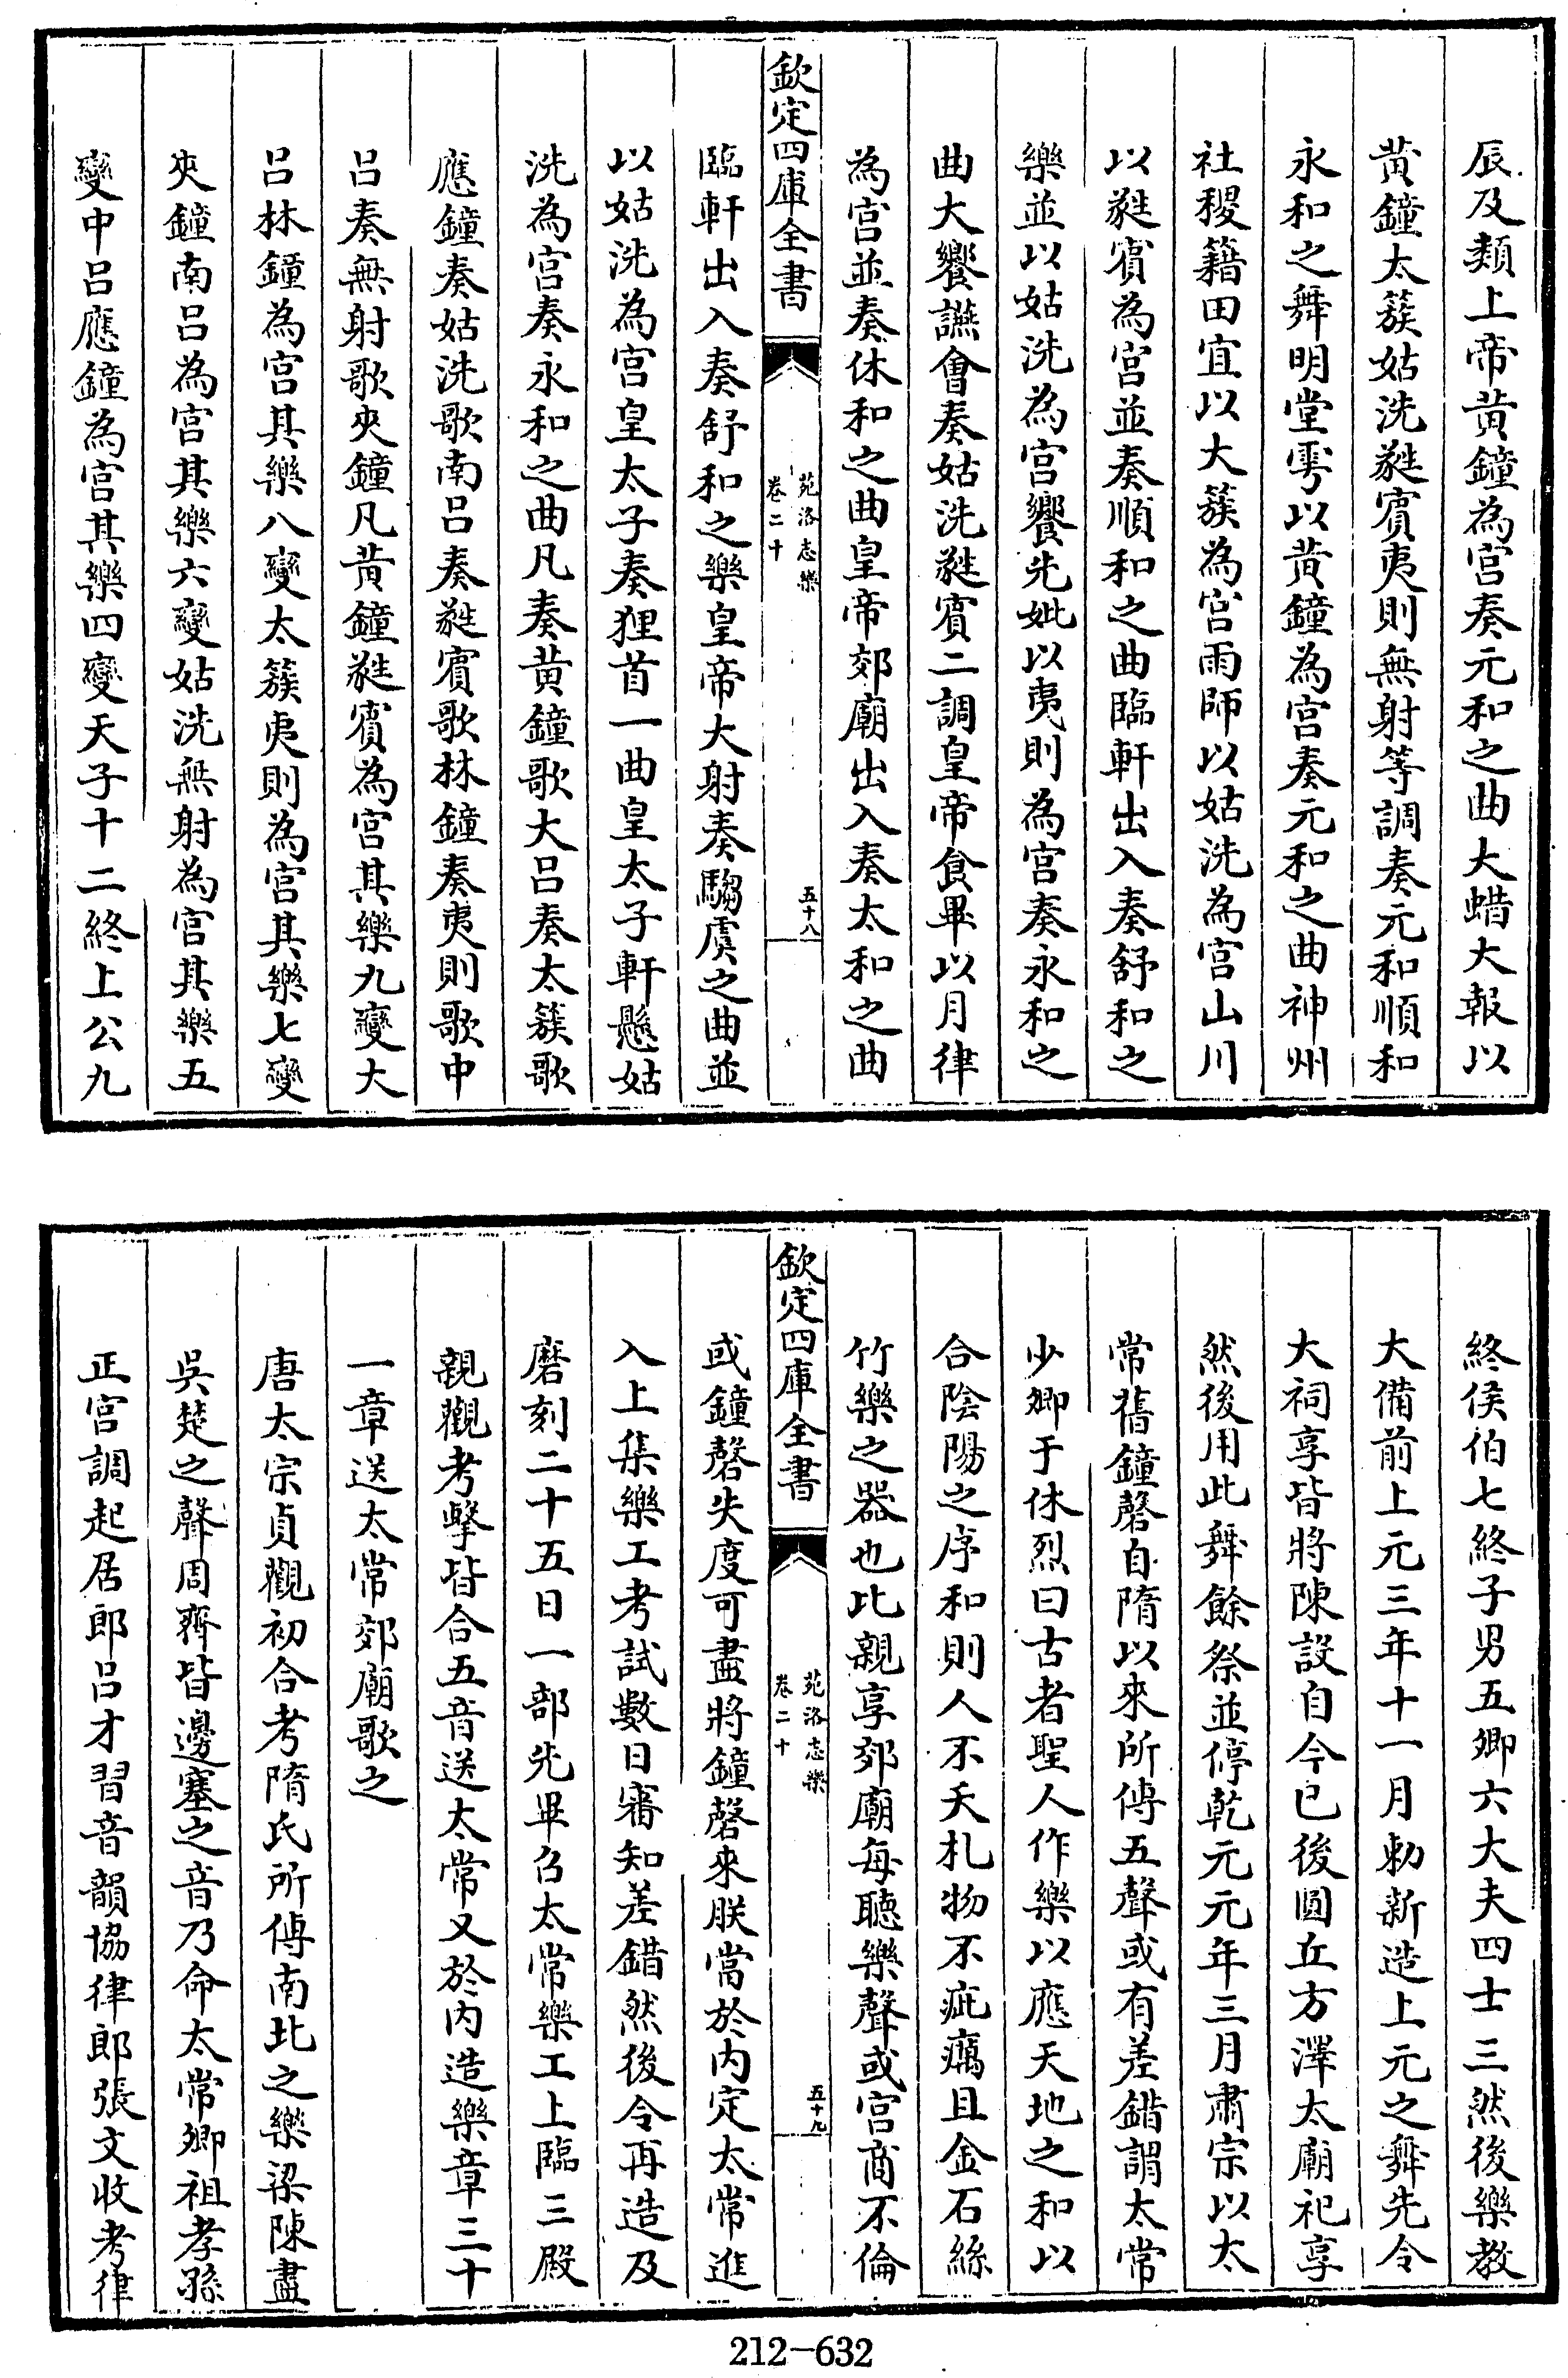 辰及類上帝黄鐘為宫奏元和之曲大蜡大報以
黄鐘太簇姑洗蕤賓夷則無射等調奏元和順和
永和之舞明堂雩以黄鐘為宫奏元和之曲神州
社稷籍田宜以大簇為宫雨師以姑洗為宫山川
以蕤賓為宫並奏順和之曲臨軒出入奏舒和之
樂並以姑洗為宫饗先妣以夷則為宫奏永和之
曲大饗讌會奏姑洗蕤賓二調皇帝食畢以月律
為宫並奏休和之曲皇帝郊廟出入奏太和之曲
欽定四庫全書
苑洛志樂
卷二十
五十八
臨軒出入奏舒和之樂皇帝大射奏騶虞之曲並
以姑洗為宫皇太子奏狸首一曲皇太子軒懸姑
洗為宫奏永和之曲凡奏黄鐘歌大吕奏太簇歌
應鐘奏姑洗歌南吕奏蕤賓歌林鐘奏夷則歌中
吕奏無射歌夾鐘凡黄鐘蕤賓為宫其樂九變大
吕林鐘為宫其樂八變太簇夷則為宫其樂七變
夾鐘南吕為宫其樂六變姑洗無射為宫其樂五
變中吕應鐘為宫其樂四變天子十二終上公九
終侯伯七終子男五卿六大夫四士三然後樂教
大備前上元三年十一月勅新造上元之舞先令
大祠享皆將陳設自今已後圓丘方澤太廟祀享
然後用此舞餘祭並停乾元元年三月肅宗以太
常舊鐘磬自隋以來所傳五聲或有差錯謂太常
少卿于休烈曰古者聖人作樂以應天地之和以
合陰陽之序和則人不夭札物不疵癘且金石絲
竹樂之器也比親享郊廟每聽樂聲或宫商不倫
欽定四庫全書
苑洛志樂
卷二十
五十九
或鐘磬失度可盡將鐘磬來朕當於内定太常進
入上集樂工考試數日審知差錯然後令再造及
磨刻二十五日一部先畢召太常樂工上臨三殿
親觀考擊皆合五音送太常又於内造樂章三十
一章送太常郊廟歌之
唐太宗貞觀初合考隋氏所傳南北之樂梁陳盡
吳楚之聲周齊皆邊塞之音乃命太常卿祖孝孫
正宫調起居郎吕才習音韻協律郎張文收考律
212-632